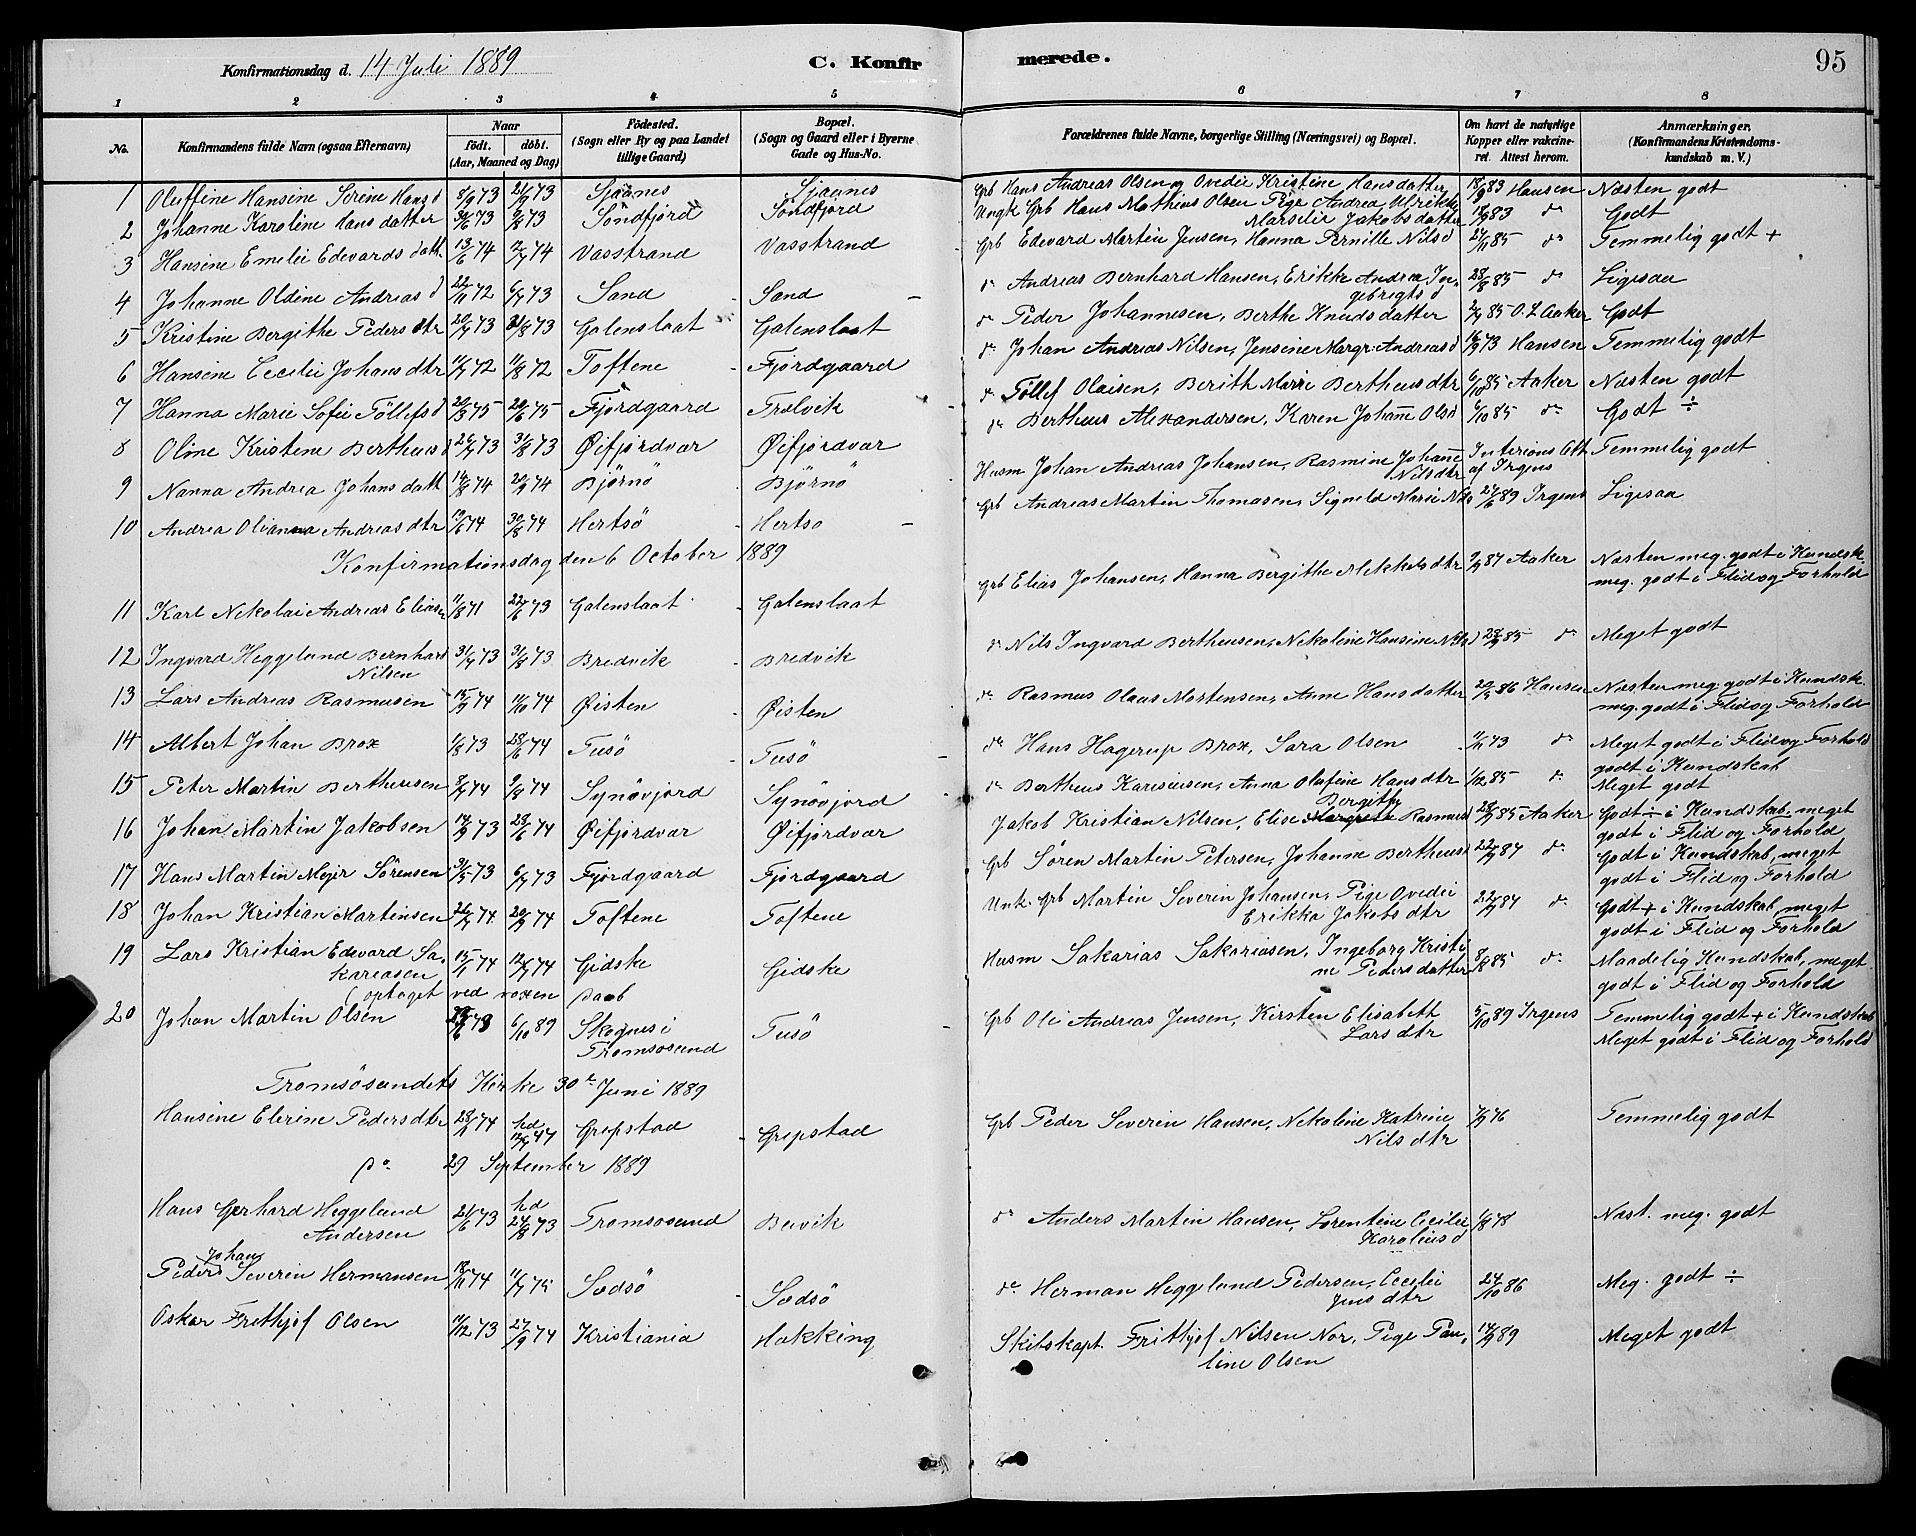 Konfirmationsdag d. 14 Juli 1889 C. Konfirmerede. 95
1 2 3 4 5 6 7 8
No. Konfirmandens fulde Navn (ogsaa Efternavn) Naar födt. döbt. (Aar, Maaned og Dag) Födested. (Sogn eller By og paa Landet tillige Gaard) Bopæl. (Sogn og Gaard eller i Byerne Gade og Hus-No. Forældrenes fulde Navne, borgerlige Stilling (Næringsvei) og Bopæl. Om havt de naturlige Kopper eller vakcineret. Attest herom. Anmærkninger. (Konfirmandens Kristendomskundskab m. V.)
1 Oluffine Hansine Serine Hansd 8/9 73 21/9 73 Sjaanes Sjaanes Grb Hans Andreas Olsen og Ovedie Kristine Hansdatter 18/9 83 Hansen Næsten godt
2 Johanne Karoline Hansdatter 30/6 73 9/8 73 Söndfjord Söndfjord Ungk Grb Hans Mathius Olsen Pige Andrea Ulrikke Marselie Jakobsdatter 18/9 83 do Godt
3 Hansine Emelie Edevardsdatt. 13/6 74 12/7 74 Vasstrand Vasstrand Grb Edevard Martin Jensen, Hanna Pernille Nilsd 27/11 85 do Temmelig godt +
4 Johanne Oldine Andreasd 22/11 72 6/7 73 Sand Sand do Andreas Bernhard Hansen, Erikke Andrea Ingebrigtsd 28/8 85 do Ligesaa
5 Kristine Bergithe Pedersdtr 20/7 73 31/8 73 Galenslaat Galenslaat do Peder Johannesen, Berthe Knudsdatter 2/9 85 O. L. Aaker Godt
6 Hansine Cecilie Johansdtr 11/7 72 11/8 72 Toftene Fjordgaard do Johan Andreas Nilsen, Jensine Margr. Andreasd 16/9 73 Hansen Temmelig godt
7 Hanna Marie Sofie Töllefsd 20/3 75 20/6 75 Fjordgaard Trælvik do Töllef Olaisen, Berith Marie Bertheusdtr 6/10 85 Aaker Næsten godt
8 Oline Kristene Bertheusd 26/7 73 31/8 73 Øifjordvar Øifjordvar do Bertheus Alexandersen, Karen Johanne Olsd 6/10 85 do Godt ÷
9 Nanna Andrea Johansdatt 14/8 74 20/9 74 Björnö Björnö Husm Johan Andreas Johansen, Rasmine Johanne Nilsdtr Interiens Att af Irgens Temmelig godt
10 Andrea Olianna Andreasdtr 19/6 74 30/8 74 Hertsö Hertsö Grb Andreas Martin Thomasen, Signeld Marie Nils 24/6 89 Irgens Ligesaa
Konfirmationsdag den 6 October 1889
11 Karl Nikolai Andreas Eliasen 11/8 71 22/6 73 Galenslaat Galenslaat Grb Elias Johansen, Hanna Bergithe Mikkelsdtr 9/9 87 Aaker Næsten meg. godt i Kundsk. meg. godt i Flid og Forhold
12 Ingvard Heggelund Bernhard Nilsen 31/7 73 31/8 73 Bredvik Bredvik do Nils Ingvard Bertheusen, Nekoline Hansine Nilsd 28/9 85 do Meget godt
13 Lars Andreas Rasmusen 15/9 74 11/10 74 Øisten Øisten do Rasmus Olaus Mortensen, Anne Hansdatter 20/5 86 Hansen Næsten meg. godt i Kundsk. meg. godt i Flid og Forhold
14 Albert Johan Brox 1/8 73 28/6 74 Tusö Tusö do Hans Hagerup Brox, Sara Olsen 11/11 73 do Meget godt i Flid og Forhold godt i Kundskab
15 Peter Martin Bertheusen 8/7 74 9/8 74 Synövjord Synövjord do Bertheus Kariusen, Anna Olufine Hansdtr 1/12 85 do Meget godt
16 Johan Martin Jakobsen 14/9 73 28/6 74 Øifjordvar Øifjordvar Jakob Kristian Nilsen, Elise Bergithe Rasmusd 28/9 85 Aaker Godt ÷ i Kundskab, meget godt i Flid og Forhold
17 Hans Martin Mejer Sörensen 31/5 73 6/7 73 Fjordgaard Fjordgaard Grb Sören Martin Petersen, Johanne Bertheusd 22/9 87 do Godt i Kundskab, meget godt i Flid og Forhold
18 Johan Kristian Martinsen 26/7 74 20/9 74 Toftene Toftene Unk. Grb Martin Severin Johansen, Pige Ovedie Erikka Jakobsdtr 22/9 87 do Godt + i Kundskab, meget godt i Flid og Forhold
19 Lars Kristian Edevard Sakariasen 15/1 74 12/7 74 Gidske Gidske Husm Sakarias Sakariasen, Ingeborg Kristine Pedersdatter 8/8 85 do Maadelig Kundskab, meget godt i Flid og Forhold
(optaget ved voxen Daab
20 Johan Martin Olsen 29/6 73 6/10 89 Skognes i Tromsösund Tusö Grb Oli Andreas Jensen, Kirsten Elisabeth Larsdtr 5/10 89 Irgens Temmelig godt + i Kundskab Meget godt i Flid og Forhold
Tromsösundets Kirke 30te Juni 1889
Hansine Elerine Pedersdtr 28/1 74 hd 12/7 74 Grepstad Grepstad Grb Peder Severin Hansen, Nekoline Katrine Nilsdtr 7/9 76 Temmelig godt
Do 29 September 1889
Hans Gerhard Heggelund Andersen 21/6 73 hd 24/8 73 Tromsösund Bervik do Anders Martin Hansen, Lorentine Cecilie Karoliusd 1/8 78 Næst. meg. godt
Peder Johan Severin Hermansen 18/11 74 11/7 75 Sodsö Sodsö do Herman Heggelund Pedersen, Cecilie Jensdtr 24/10 86 Meg. godt ÷
Oskar Frithjof Olsen 11/12 73 27/9 74 Kristiania Hakking Skibskapt. Frithjof Nilsen Nor, Pige Pauline Olsen 14/9 89 Meget godt